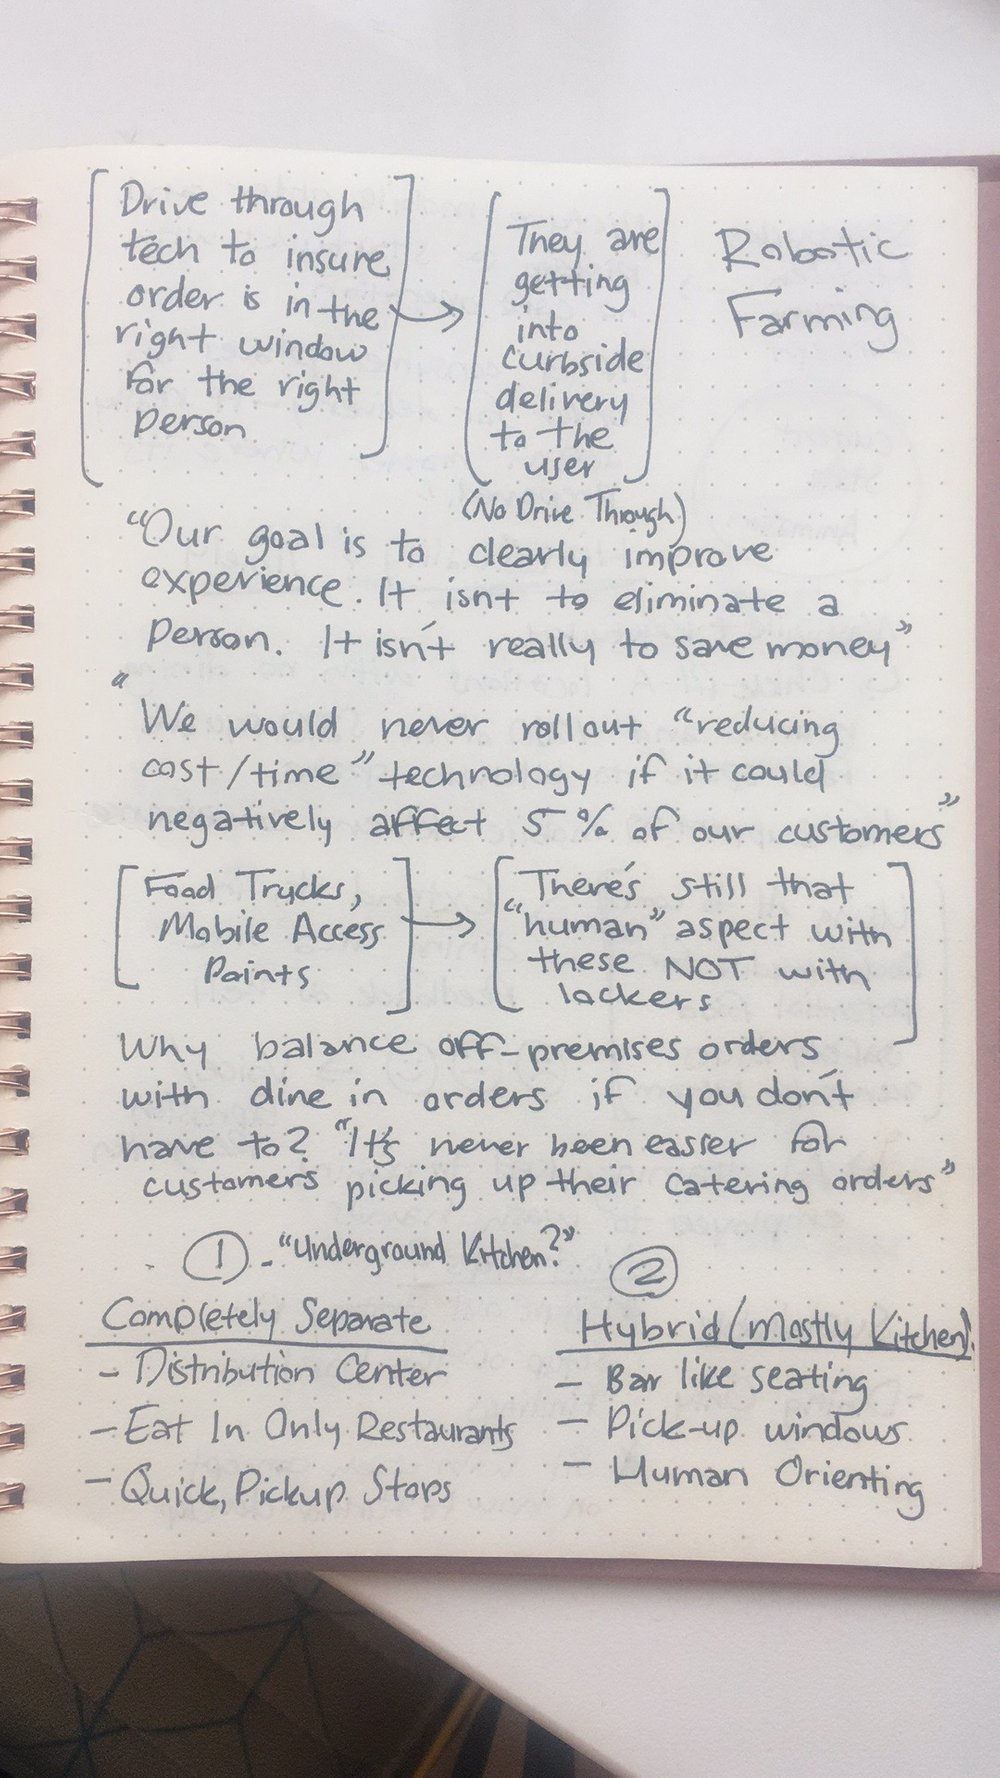 Drive through
tech to insure
order is in the
right window
for the right
person
They are
getting
into
curbside
delivery
to the
user
(No Drive Through)
Robotic
Farming
"Our goal is to clearly improve
experience. It isnt to eliminate a
person. It isn't really to save money"
"We would never roll out "reducing
cost/time" technology if it could
negatively affect 5% of our customers"
Food Trucks,
Mobile Access
Points
There's still that
"human" aspect with
these NOT with
lockers
Why balance off-premises orders
with dine in orders if you don't
have to? "It's never been easier for
customers picking up their catering orders"
① - "Underground Kitchen?"
Completely Separate
- Distribution Center
- Eat In Only Restaurants
- Quick, Pickup Stops
②
Hybrid (Mostly Kitchen)
- Bar like seating
- Pick-up windows
- Human Orienting